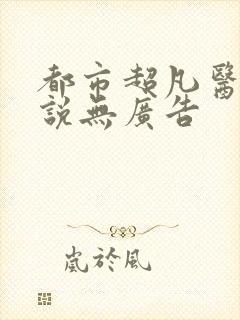 都市超凡醫
說無廣告
嵐於風